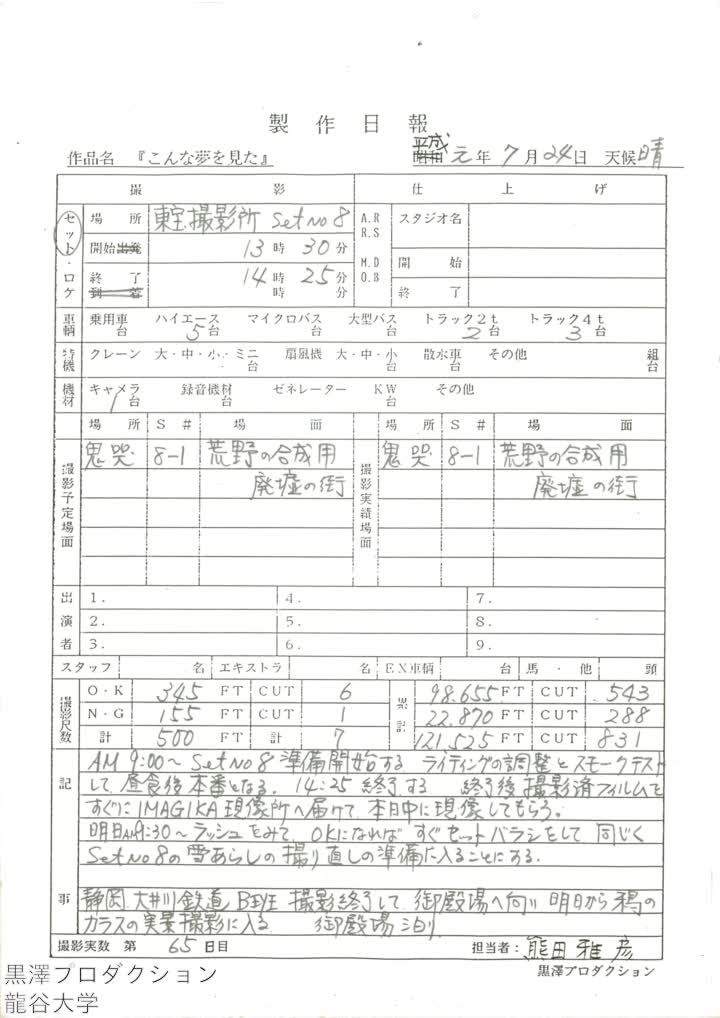 製作日報
作品名 『こんな夢を見た』 平成 元年 7月 24日 天候 晴
撮影 仕上げ
セット・ロケ 場所 東宝撮影所 Set No 8 A.R R.S スタジオ名
開始 出発 13時 30分
M.D O.B 開始
終了 14時 25分
到着 時 分 終了
車輌 乗用車 台 ハイエース 5台 マイクロバス 台 大型バス 台 トラック2t 2台 トラック4t 3台
特機 クレーン 大・中・小・ミニ 台 扇風機 大・中・小 台 散水車 台 その他 組 台
機材 キャメラ 1台 録音機材 台 ゼネレーター KW 台 その他
場所 S# 場面 場所 S# 場面
撮影予定場面 鬼哭 8-1 荒野の合成用 撮影実績場面 鬼哭 8-1 荒野の合成用
廃墟の街 廃墟の街
出演者 1. 4. 7.
2. 5. 8.
3. 6. 9.
スタッフ 名 エキストラ 名 EX車輌 台 馬・他 頭
撮影尺数 O・K 345 FT CUT 6 累計 98.655 FT CUT 543
N・G 155 FT CUT 1 22.870 FT CUT 288
計 500 FT 計 7 121.525 FT CUT 831
記事 AM 9:00〜 Set No 8 準備開始する ライティングの調整とスモークテスト
して、昼食後本番となる。14:25 終了する 終了後 撮影済フィルムを
すぐに IMAGIKA 現像所へ届けて、本日中に現像してもらう。
明日AM9:30〜ラッシュをみて、OKになれば すぐセットバラシをして、同じく
Set No 8の雪あらしの撮り直しの準備に入ることにする。
静岡、大井川鉄道 B班 撮影終了して、御殿場へ向い 明日から鴉の
カラスの実景撮影に入る 御殿場泊り
撮影実数 第 65日目 担当者: 熊田雅彦
黒澤プロダクション
黒澤プロダクション
龍谷大学